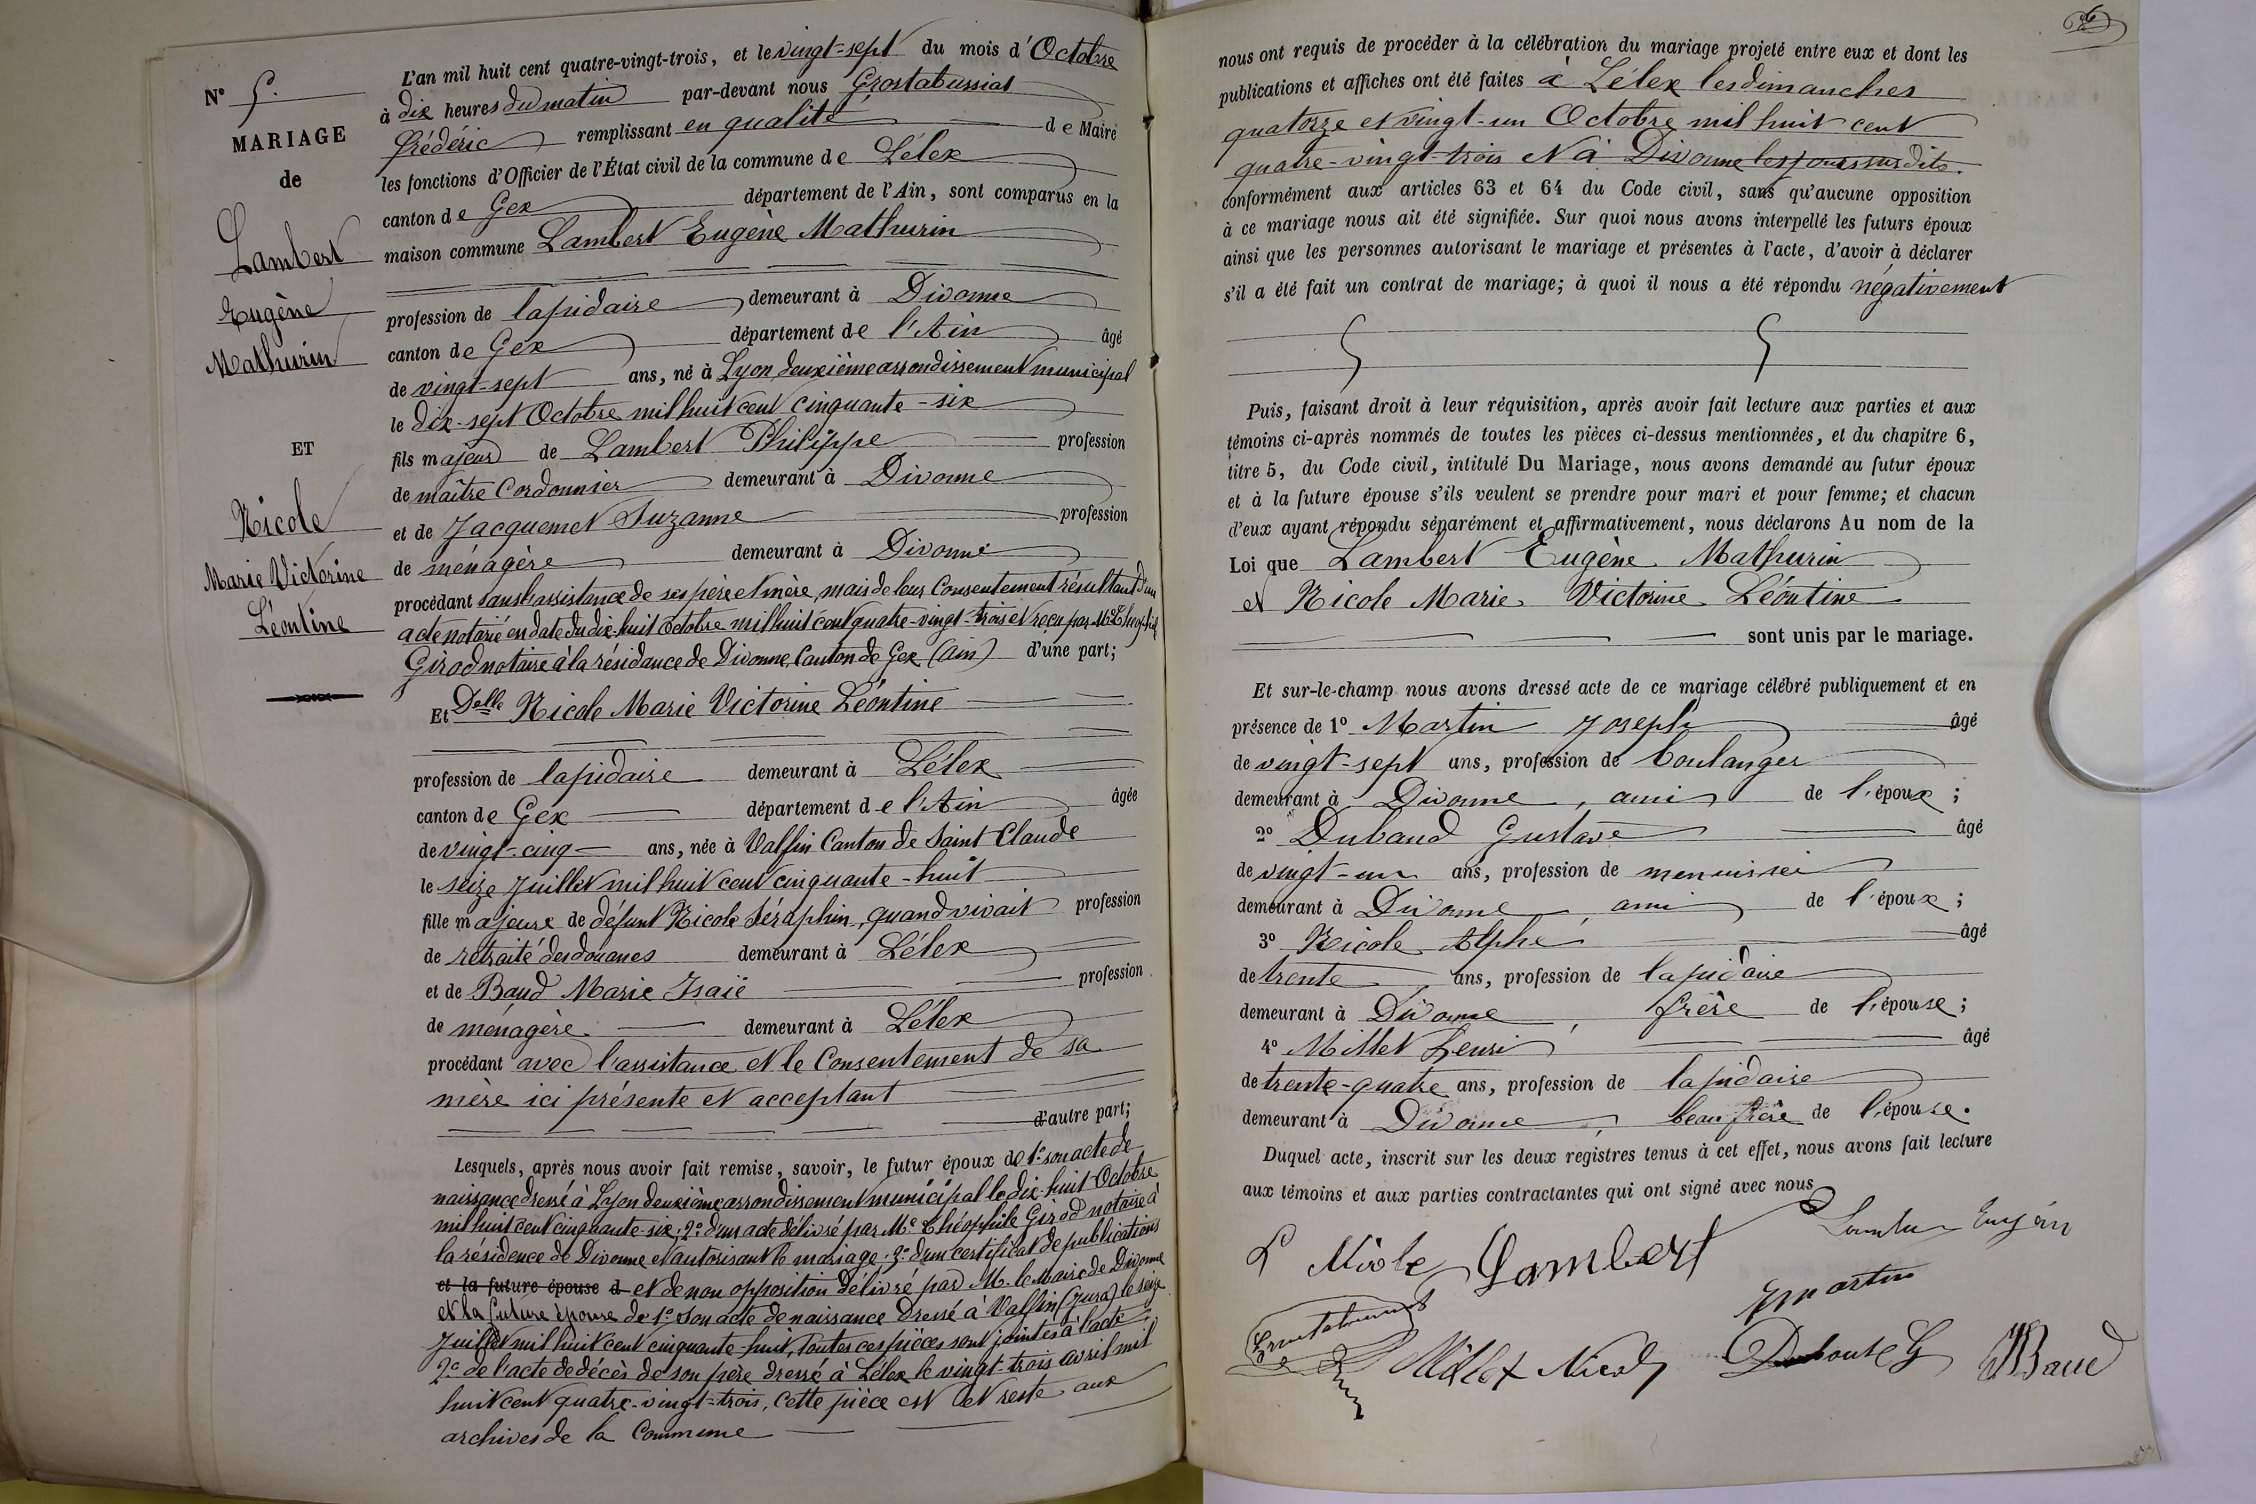 N° 5.
MARIAGE
de
Lambert
Eugène
Mathurin
ET
Nicole
Marie Victorine
Léontine
L'an mil huit cent quatre-vingt-trois, et le vingt-sept du mois d'Octobre
à dix heures du matin par-devant nous Grostabussiat
Frédéric remplissant en qualité de Maire
les fonctions d'Officier de l'État civil de la commune de Lélex
canton de Gex département de l'Ain, sont comparus en la
maison commune Lambert Eugène Mathurin
profession de lapidaire demeurant à Divonne
canton de Gex département de l'Ain âgé
de vingt-sept ans, né à Lyon deuxième arrondissement municipal
le dix-sept Octobre mil huit cent cinquante-six
fils majeur de Lambert Philippe profession
de maître Cordonnier demeurant à Divonne
et de Jacquemet Suzanne profession
de ménagère demeurant à Divonne
procédant sans l'assistance de ses père et mère, mais de leur Consentement résultant d'un
acte notarié en date du dix-huit Octobre mil huit cent quatre-vingt-trois et reçu par Me
Girod notaire à la résidance de Divonne Canton de Gex (Ain) d'une part;
Et Delle Nicole Marie Victorine Léontine
profession de lapidaire demeurant à Lélex
canton de Gex département de l'Ain âgée
de vingt-cinq ans, née à Valfin Canton de Saint Claude
le seize Juillet mil huit cent cinquante-huit
fille majeure de défunt Nicole Séraphin, quand vivait profession
de retraité des douanes demeurant à Lélex
et de Baud Marie Isaïe profession
de ménagère demeurant à Lélex
procédant avec l'assistance et le Consentement de sa
mère ici présente et acceptant
d'autre part;
Lesquels, après nous avoir fait remise, savoir, le futur époux de 1° son acte de
naissance dressé à Lyon deuxième arrondissement municipal le dix-huit Octobre
mil huit cent cinquante-six; 2° d'un acte délivré par Me Théophile Girod notaire à
la résidence de Divonne et autorisant le mariage; 3° d'un certificat de publications
et la future épouse d et de non opposition délivré par M. le Maire de Divonne
et la future épouse de 1° son acte de naissance dressé à Valfin (Jura) le seize
Juillet mil huit cent cinquante-huit, toutes ces pièces sont jointes à l'acte,
2° de l'acte de décès de son père dressé à Lélex le vingt-trois avril mil
huit cent quatre-vingt-trois, cette pièce est et reste aux
archives de la Commune
nous ont requis de procéder à la célébration du mariage projeté entre eux et dont les
publications et affiches ont été faites à Lélex les dimanches
quatorze et vingt-un Octobre mil huit cent
quatre-vingt-trois et à Divonne les jours susdits.
conformément aux articles 63 et 64 du Code civil, sans qu'aucune opposition
à ce mariage nous ait été signifiée. Sur quoi nous avons interpellé les futurs époux
ainsi que les personnes autorisant le mariage et présentes à l'acte, d'avoir à déclarer
s'il a été fait un contrat de mariage; à quoi il nous a été répondu négativement
Puis, faisant droit à leur réquisition, après avoir fait lecture aux parties et aux
témoins ci-après nommés de toutes les pièces ci-dessus mentionnées, et du chapitre 6,
titre 5, du Code civil, intitulé Du Mariage, nous avons demandé au futur époux
et à la future épouse s'ils veulent se prendre pour mari et pour femme; et chacun
d'eux ayant répondu séparément et affirmativement, nous déclarons Au nom de la
Loi que Lambert Eugène Mathurin
et Nicole Marie Victorine Léontine
sont unis par le mariage.
Et sur-le-champ nous avons dressé acte de ce mariage célébré publiquement et en
présence de 1° Martin Joseph âgé
de vingt-sept ans, profession de boulanger
demeurant à Divonne, ami de l'époux;
2° Dubaud Gustave âgé
de vingt-un ans, profession de menuisier
demeurant à Divonne, ami de l'époux;
3° Nicole Alphé âgé
de trente ans, profession de lapidaire
demeurant à Divonne, frère de l'épouse;
4° Millet Henri âgé
de trente-quatre ans, profession de lapidaire
demeurant à Divonne, beau frère de l'épouse.
Duquel acte, inscrit sur les deux registres tenus à cet effet, nous avons fait lecture
aux témoins et aux parties contractantes qui ont signé avec nous
L Nicole Lambert Eugèn
Martin
Millet Nicol G Baud